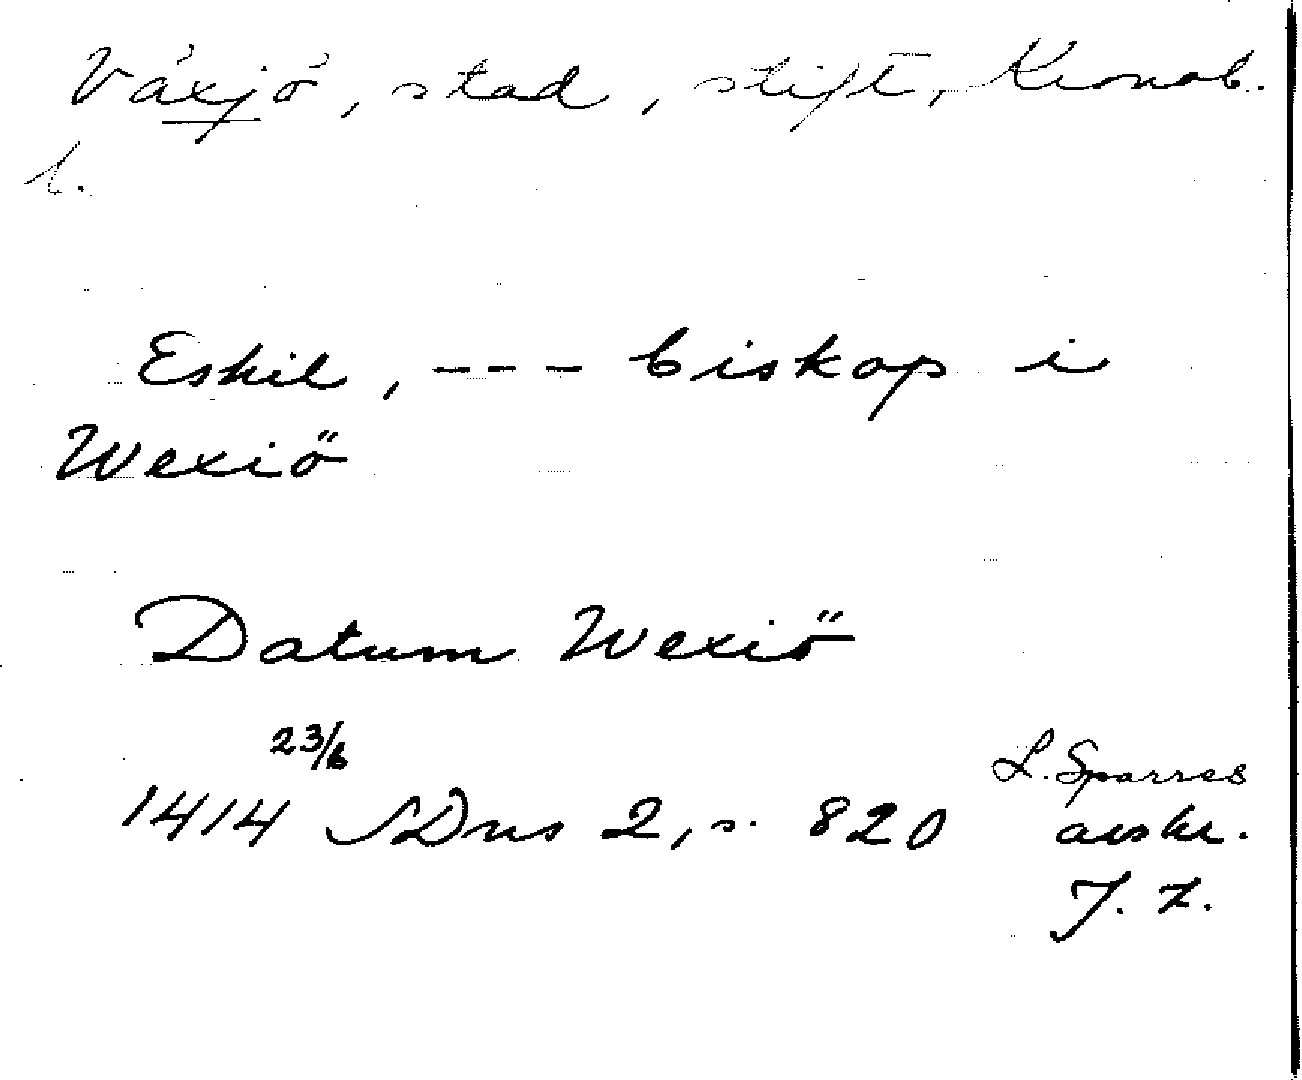 Växjö, stad, stift, Kronob.
l.
Eskil, --- biskop i
Wexiö
Datum Wexiö
23/6
1414 SDns 2, s. 820
L. Sparres
avskr.
J. Z.